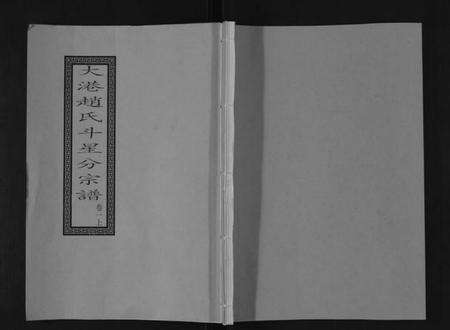 大港趙氏斗星分宗譜 卷二上